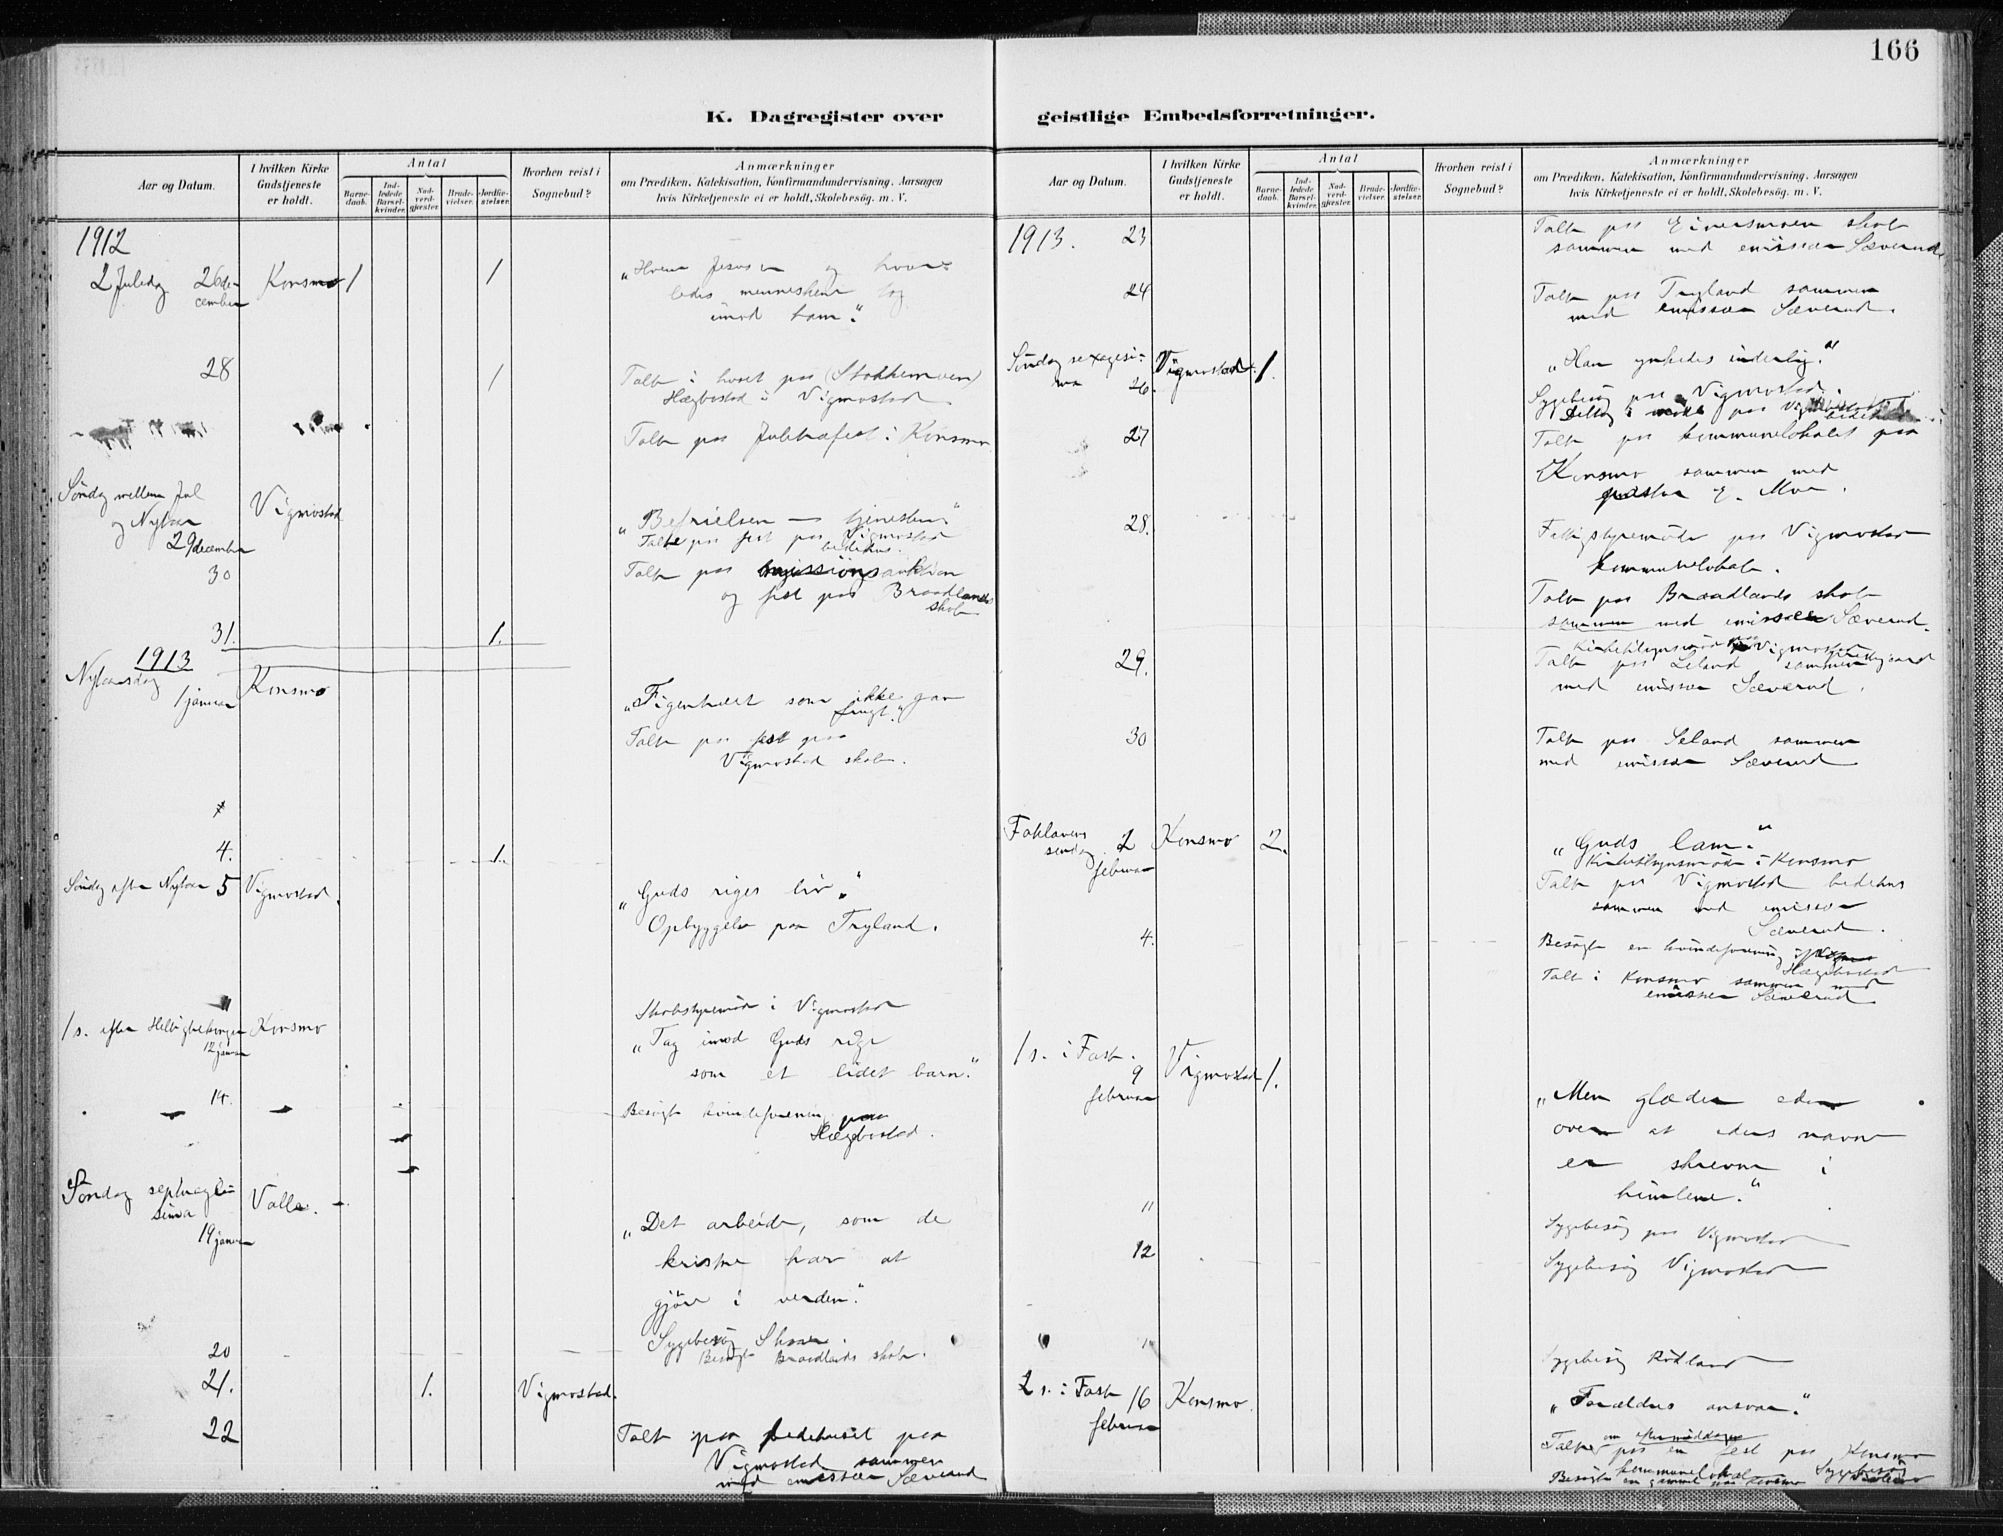 166
K. Dagregister over geistlige Embedsforretninger.
Aar og Datum.
I hvilken Kirke Gudstjeneste er holdt.
Antal
Barne-daab.
Ind-ledede Barsel-kvinder.
Nad-verd-gjester.
Brude-vielser.
Jordfæ-stelser.
Hvorhen reist i Sognebud?
Anmærkninger
om Prædiken, Katekisation, Konfirmandundervisning, Aarsagen
hvis Kirketjeneste ei er holdt, Skolebesøg, m. V.
1912
2 Juledag 26 de-
cember Konsmo 1 1
„Hvem Jesus er og hvor-
ledes menneskene tog
imod ham."
28 1
Talte i huset paa (Stokkemoen)
Hægbostad i Vigmostad
Talte paa Juletræfest i Konsmo
Søndag mellem Jul
og Nytaar
29 december Vigmostad
„Befrielsen — tjenesten"
Talte paa fest paa Vigmostad
bedehus.
30
Talte paa missionsauktion
og fest paa Braadlands
skole
31. 1.
1913
Nytaarsdag
1 januar Konsmo
„Figentræet som ikke gav
frugt."
Talte paa fest paa
Vigmostad skole.
4. 1.
Søndag efter Nytaar 5 Vigmostad.
„Guds riges liv."
Opbyggelse paa Tryland.
11
Skolestyremøde i Vigmostad
1 s. efter Helligtrekonger
12 januar Konsmo
„Tag imod Guds rige
som et lidet barn."
14.
Besøgt kvindeforening paa
Hægbostad.
Søndag septuage-
sima
19 januar Valle.
„Det arbeide, som de
kristne har at
gjøre i verden."
Sygebesøg
20
Besøgt Braadlands skole.
21. 1. Vigmostad.
22
Talte paa bedehuset paa
Vigmostad sammen
med emissær Sæverud
Aar og Datum.
I hvilken Kirke Gudstjeneste er holdt.
Antal
Barne-daab.
Ind-ledede Barsel-kvinder.
Nad-verd-gjester.
Brude-vielser.
Jordfæ-stelser.
Hvorhen reist i Sognebud?
Anmærkninger
om Prædiken, Katekisation, Konfirmandundervisning, Aarsagen
hvis Kirketjeneste ei er holdt, Skolebesøg, m. V.
1913. 23
Talte paa Eiversmoen skole
sammen med emissær Sæverud
24
Talte paa Tryland sammen
med emissær Sæverud.
Søndag sexagesi-
ma 26 Vigmostad 1.
„Han ynkedes inderlig."
Sygebesøg paa Vigmostad.
Deltog i møde paa Vigmostad bedehus
27
Talte paa kommunelokalet paa
Konsmo sammen med
E. Moe.
28.
Fattigstyremøde paa Vigmostad
kommunelokale.
Talte paa Braadlands skole
sammen med emissær Sæverud.
29.
Kirketilsynsmøde paa Vigmostad
Talte paa Leland sammen
med emissær Sæverud.
30
Talte paa Leland sammen
med emissær Sæverud
Fastelavns
søndag 2
februar Konsmo 2.
„Guds lam."
Kirketilsynsmøde i Konsmo
Talte paa Vigmostad bedehus
sammen med emissær
Sæverud.
4.
Besøgte en kvindeforening i
Hægbostad
Talte i Konsmo sammen med
emissær Sæverud
1 s. i Faste.
9
februar Vigmostad 1.
„Men glæder eder
over at eders navne
er skrevne i
himlene."
11
Sygebesøg paa Vigmostad
12
Sygebesøg Vigmostad
Sygebesøg
2 s. i Faste 16
februar Konsmo.
„Forældres ansvar."
Talte om eftermiddagen
paa en fest paa Konsmo
kommunelokal Sygebesøg
Besøgte en gammel paa Konsmo